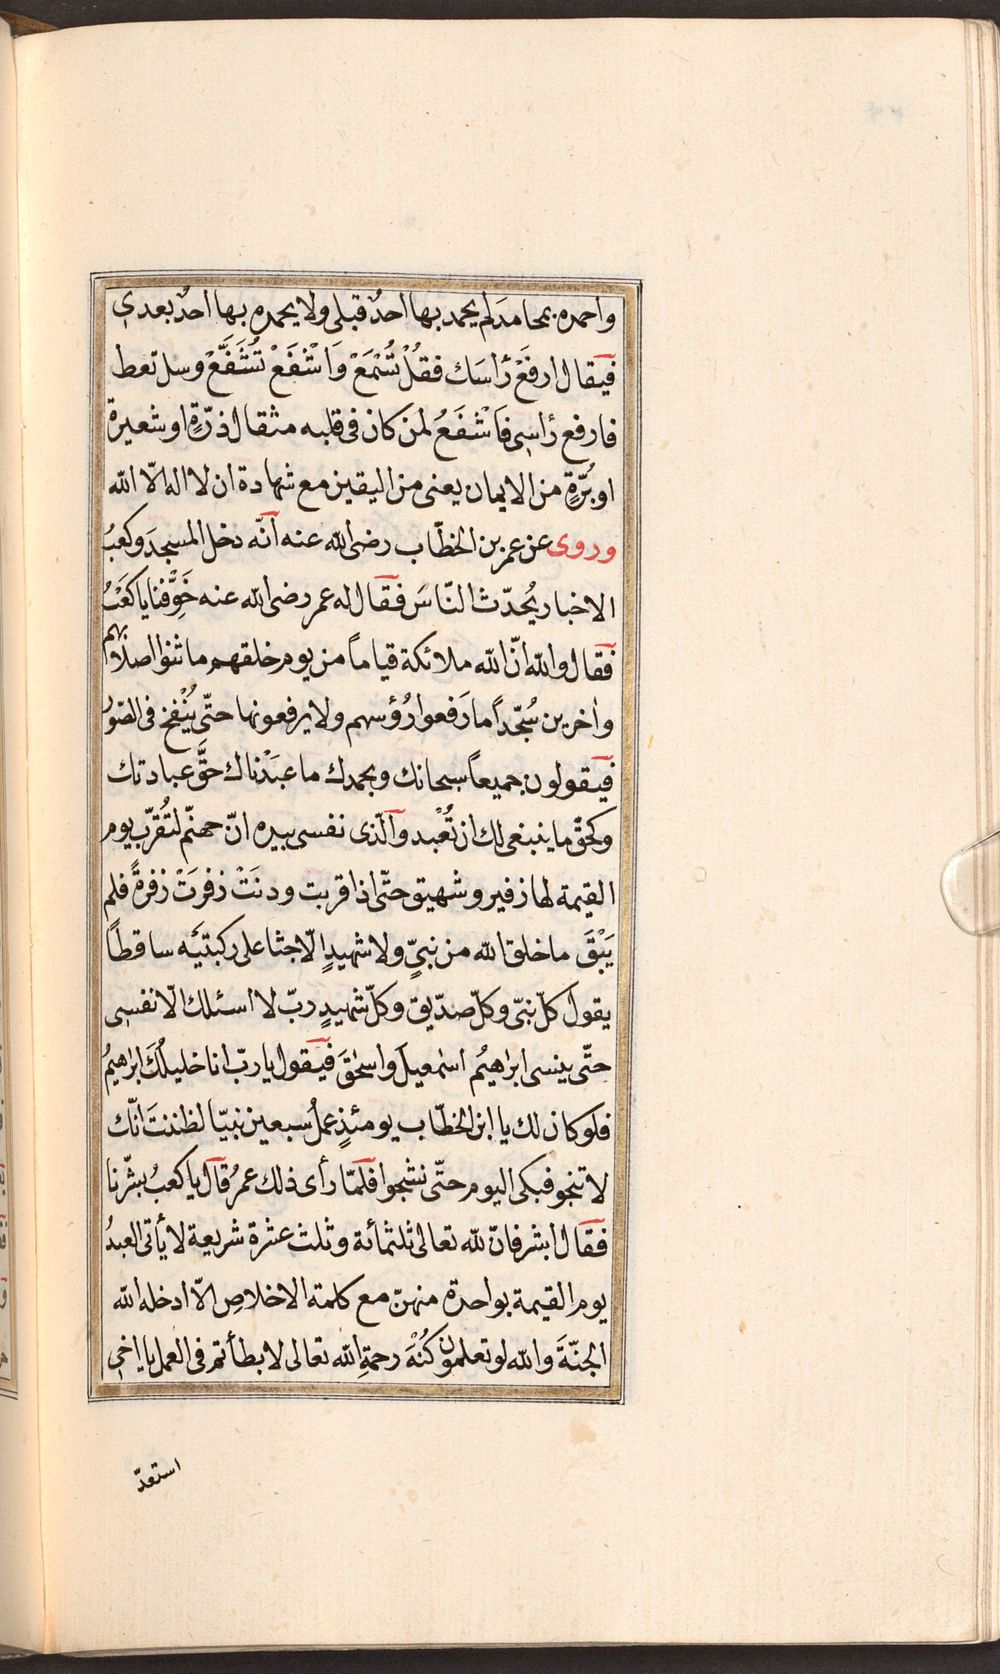 واحمده بمحامدَ لم يحمد بها احدٌ قبلى ولا يحمده بها احدٌ بعدى
فيقال ارفَعْ رأسَك فقُلْ تُسْمَعْ وَاشْفَعْ تُشَفَّعْ وسل تعط
فارفع رأسى فاَشْفَعُ لمن كان فى قلبه مثقال ذرّةٍ او شعيرة
او بُرّةٍ من الايمان يعنى من اليقين مع شهادة ان لا اله الّا الله
وروى عن عمر بن الخطّاب رضى الله عنه انّه دخل المسجدَ وكعبُ
الاخبار يُحدّث النّاسَ فقال له عمر رضى الله عنه خَوِّفنا يا كعْبُ
فقال والله انّ لله ملائكة قياماً من يوم خلقهم ما ثنوا اصلابهم
واخرين سُجّداً ما رَفعوا رُؤسهم ولا يرفعونها حتّى يُنْفخ فى الصّور
فيقولون جميعاً سبحانك وبحمدك ما عبَدْناك حقَّ عبادتك
وكحقّ ما ينبغى لك ان تُعْبد والّذى نفسى بيده انّ جهنّم لتُقرّب يوم
القيمة لها زفير وشهيق حتّى اذا قربت ودنَتْ زفرَتْ زفرةً فلم
يَبْقَ ما خلق الله من نبىٍّ ولا شهيدٍ الّا جثا على ركبتيْه ساقطاً
يقول كلّ نبىّ وكلّ صدّيق وكلّ شهيدٍ ربّ لا اسئلك الّا نفسى
حتّى ينسى ابرٰهيُم اسمٰعيلَ واسحٰقَ فيقول يا ربّ انا خليلُكَ ابرٰهيمُ
فلو كان لك يا ابن الخطّاب يومئذٍ عملُ سبعين نبيّا لظننتَ انّك
لا تنجو فبكى اليوم حتّى نشجوا فلمّا رأى ذلك عمرُ قال يا كعبُ بشّرنا
فقال ابشر فانّ لله تعالى ثلثمائة وثلث عشرة شريعة لا يأتى العبدُ
يوم القيمة بواحدة منهنّ مع كلمة الاخلاصِ الّا ادخله الله
الجنّةَ والله لو تعلمون كُنْهَ رحمةِ الله تعالى لابطأتم فى العمل يا اخى
استعدّ